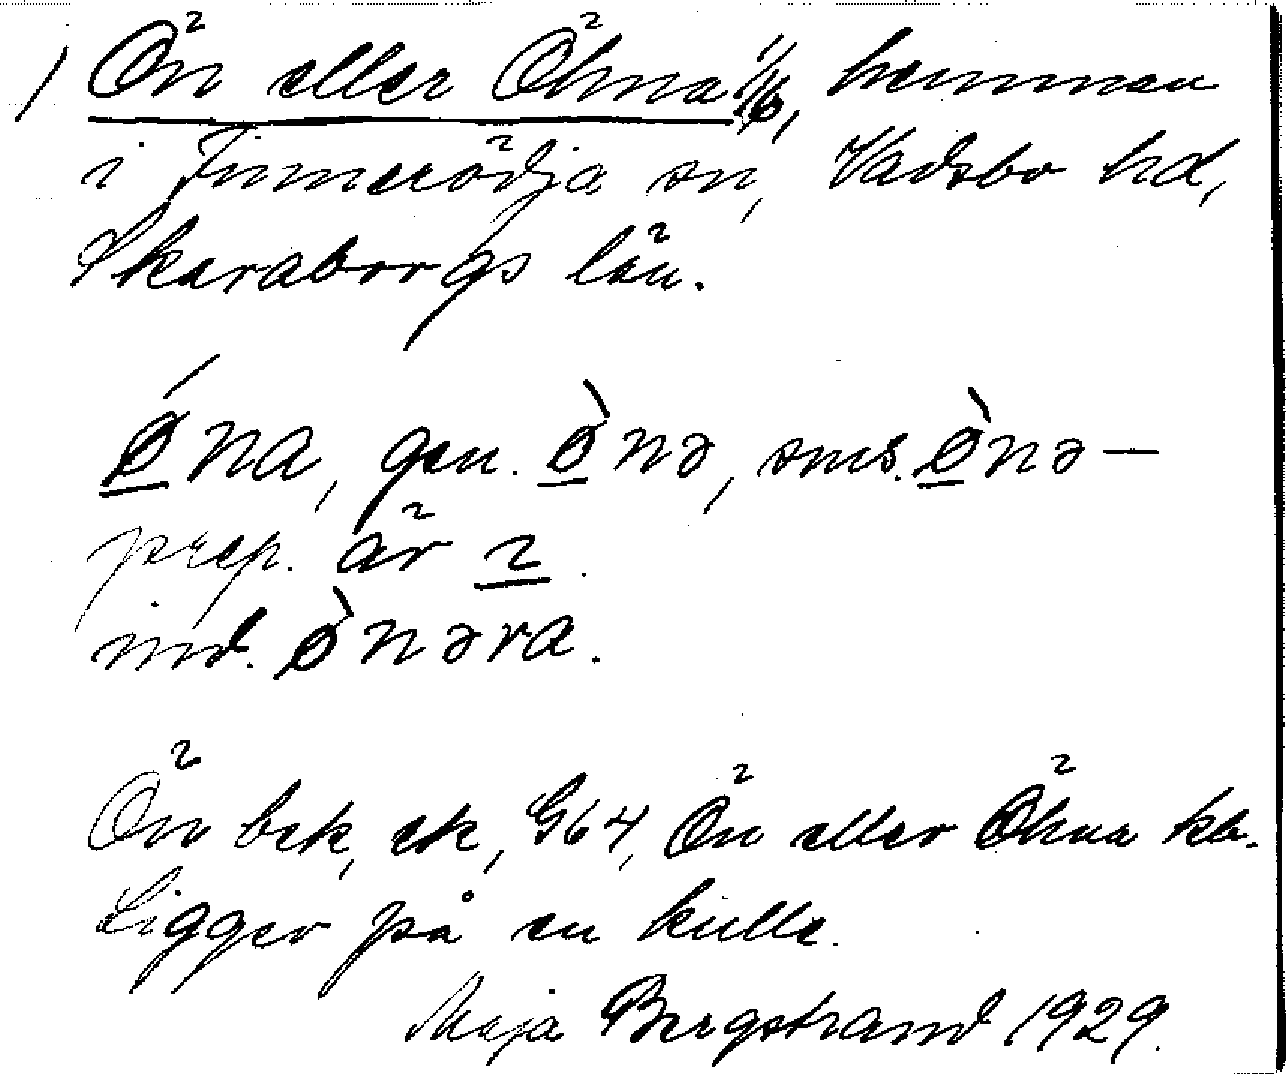 1) Ön eller Öhna 1/16, hemman
i Finnerödja sn, Vadsbo hd,
Skaraborgs län.
ǿna, gen. ø̀nə, sms. ø̀nə—
prep. är 2.
inb. ø̀nəra.
Ön bek, ek, G64, Ön eller Öhna kb.
Ligger på en kulle.
Maja Bergstrand 1929.